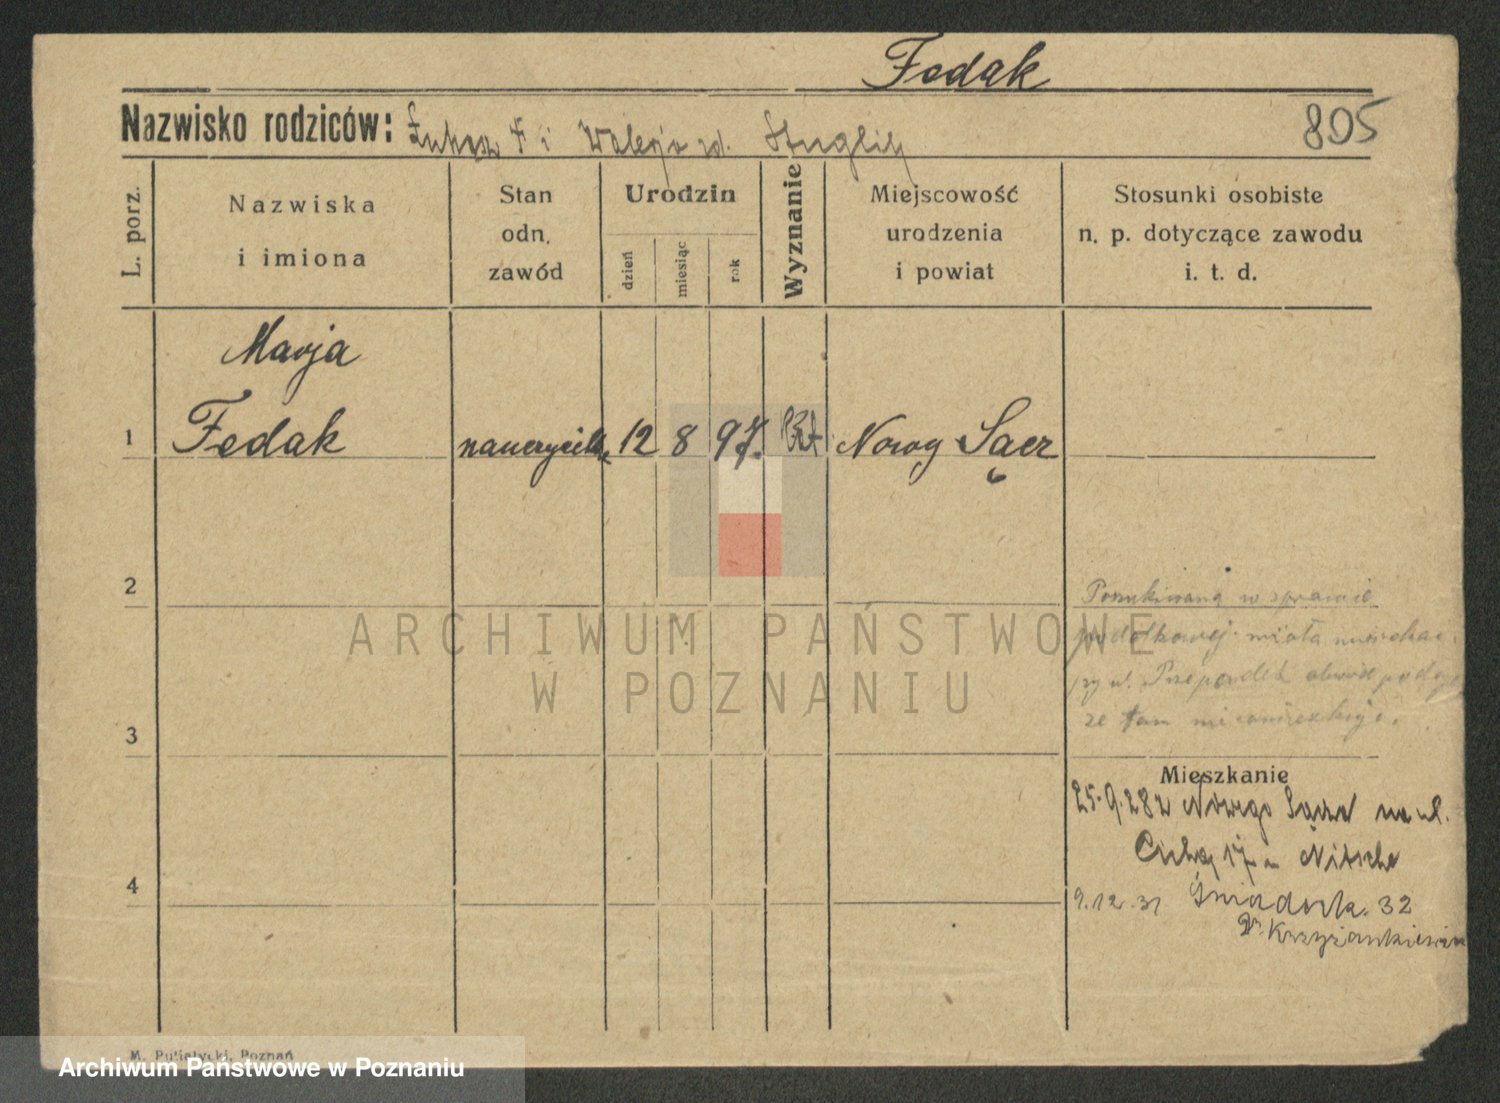 Fedak
805
Nazwisko rodziców: Łukasz F i Walerja zd. Stuglik
L. porz.
Nazwiska
i imiona
Stan
odn.
zawód
Urodzin
dzień
miesiąc
rok
Wyznanie
Miejscowość
urodzenia
i powiat
Stosunki osobiste
n. p. dotyczące zawodu
i. t. d.
Marja
1 Fedak 12 8 97. Nowy Sącz
2
Poszukiwana w sprawie
podatkowej. miała mieszkać
3
ze tam nie zamieszkuje.
Mieszkanie
25.9.28 z Nowego Sącza na ul.
Cichą 17 Nitsche
4
9.12.31 32
Krzyżankiewicz
ARCHIWUM PAŃSTWOWE
W POZNANIU
M. Putiatycki, Poznań
Archiwum Państwowe w Poznaniu